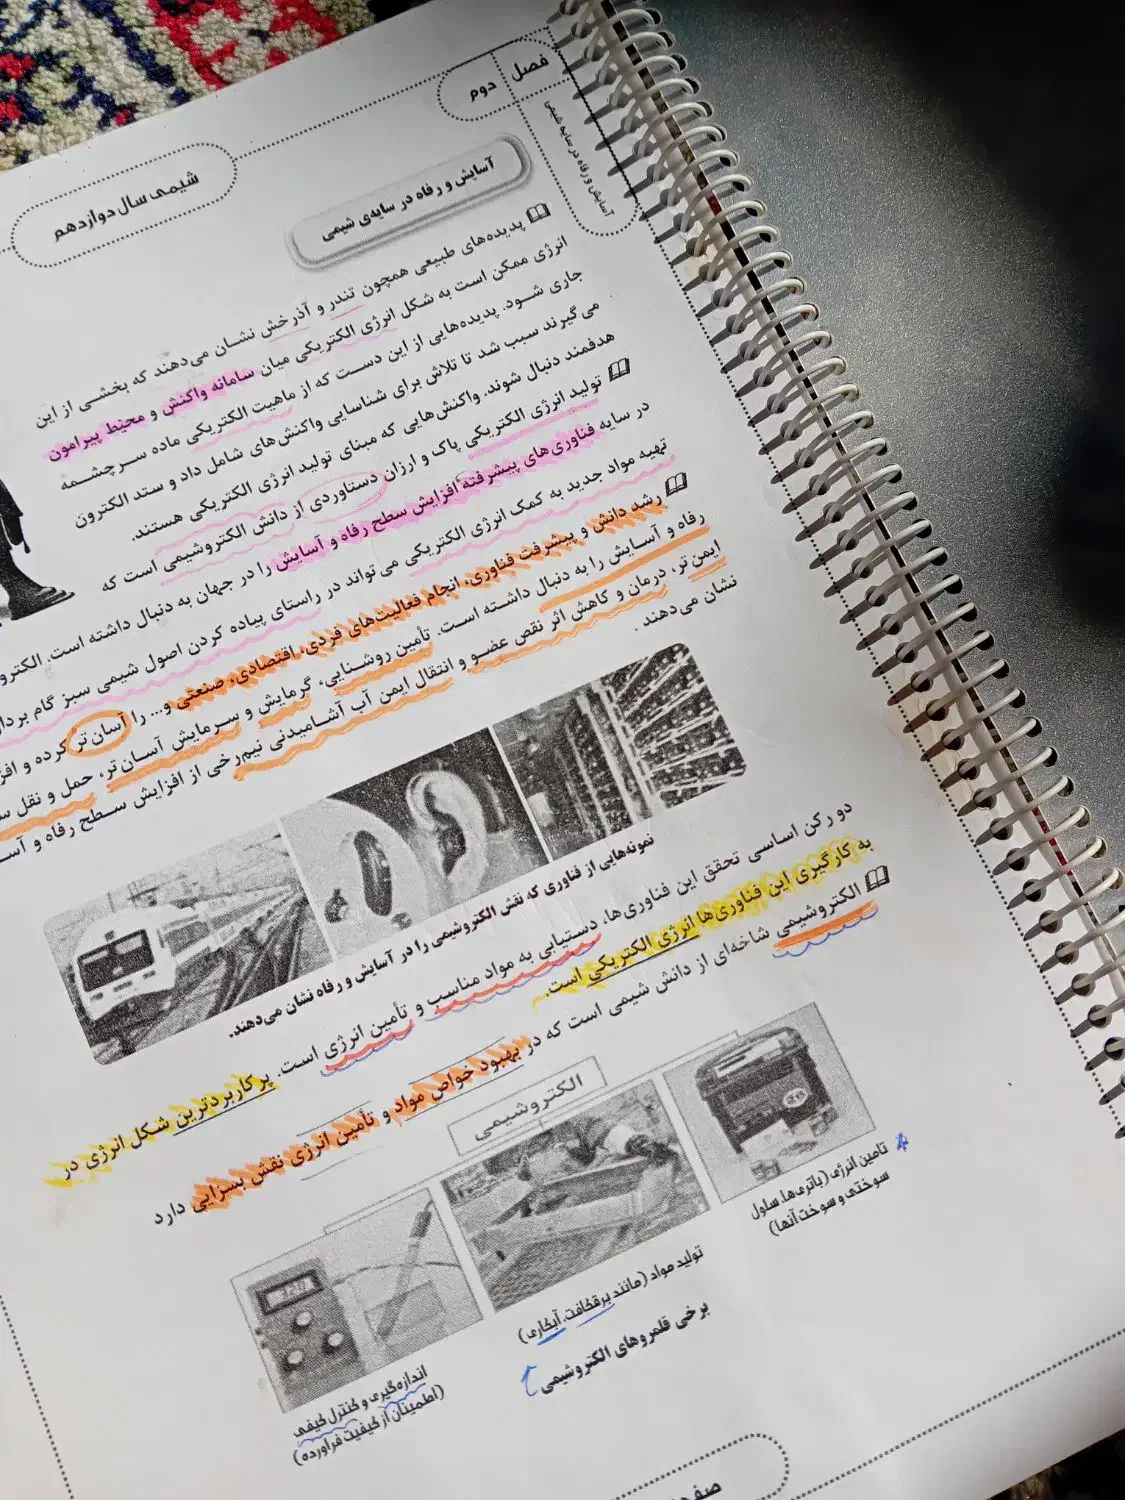 فصل
دوم
آسایش و رفاه در سایه شیمی
شیمی سال دوازدهم
آسایش و رفاه در سایه‌ی شیمی
پدیده‌های طبیعی همچون تندر و آذرخش نشان می‌دهند که بخشی از این
انرژی ممکن است به شکل انرژی الکتریکی میان سامانه واکنش و محیط پیرامون
جاری شود. پدیده‌هایی از این دست که از ماهیت الکتریکی ماده سرچشمه
می‌گیرند سبب شد تا تلاش برای شناسایی واکنش‌های شامل داد و ستد الکترون
هدفمند دنبال شوند. واکنش‌هایی که مبنای تولید انرژی الکتریکی هستند.
تولید انرژی الکتریکی پاک و ارزان دستاوردی از دانش الکتروشیمی است که
در سایه فناوری‌های پیشرفته افزایش سطح رفاه و آسایش را در جهان به دنبال داشته است.
تهیه مواد جدید به کمک انرژی الکتریکی می‌تواند در راستای پیاده کردن اصول شیمی سبز گام
رشد دانش و پیشرفت فناوری، انجام فعالیت‌های فردی، اقتصادی، صنعتی و... را آسان‌تر کرده و
رفاه و آسایش را به دنبال داشته است. تأمین روشنایی، گرمایش و سرمایش آسان‌تر، حمل و نقل
ایمن تر، درمان و کاهش اثر نقص عضو و انتقال ایمن آب آشامیدنی نیم‌رخی از افزایش سطح رفاه و
نشان می‌دهند .
نمونه‌هایی از فناوری که نقش الکتروشیمی را در آسایش و رفاه نشان می‌دهند.
دو رکن اساسی تحقق این فناوری‌ها، دستیابی به مواد مناسب و تأمین انرژی است. پرکاربردترین شکل انرژی در
به کارگیری این فناوری‌ها انرژی الکتریکی است.
الکتروشیمی شاخه‌ای از دانش شیمی است که در بهبود خواص مواد و تأمین انرژی نقش بسزایی دارد
الکتروشیمی
تامین انرژی (باتری‌ها، سلول
سوختی و سوخت آنها)
تولید مواد (مانند برقکافت، آبکاری)
اندازه‌گیری و کنترل کیفی
(اطمینان از کیفیت فراورده)
برخی قلمروهای الکتروشیمی